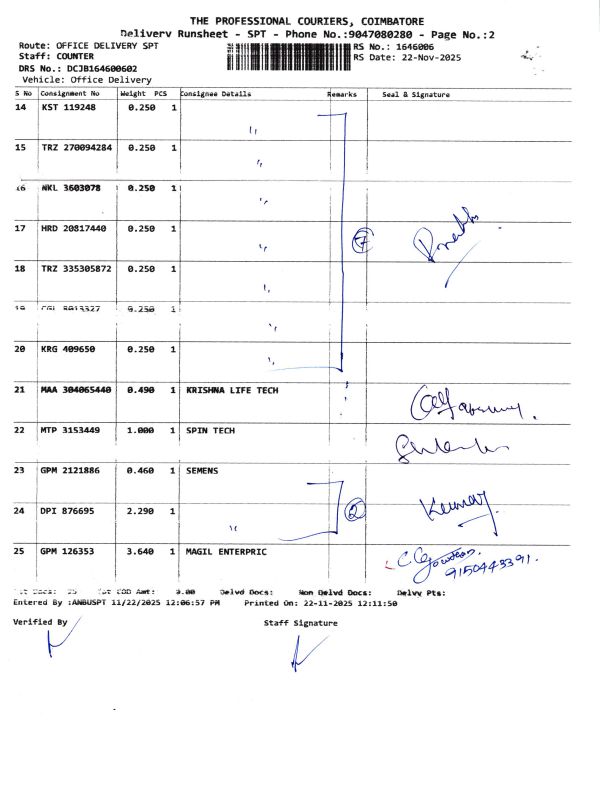 THE PROFESSIONAL COURIERS, COIMBATORE
Delivery Runsheet - SPT - Phone No.:9047080280 - Page No.:2
Route: OFFICE DELIVERY SPT RS No.: 1646006
Staff: COUNTER RS Date: 22-Nov-2025
DRS No.: DCJB164600602
Vehicle: Office Delivery
S No Consignment No Weight PCS Consignee Details Remarks Seal & Signature
14 KST 119248 0.250 1 〃
15 TRZ 270094284 0.250 1 〃
16 NKL 3603078 0.250 1 〃
17 HRD 20817440 0.250 1 〃 7
18 TRZ 335305872 0.250 1 〃
19 0.250 1 〃
20 KRG 409650 0.250 1 〃
21 MAA 304065440 0.490 1 KRISHNA LIFE TECH
22 MTP 3153449 1.000 1 SPIN TECH
23 GPM 2121886 0.460 1 SEMENS
24 DPI 876695 2.290 1 〃 2 Kumar
25 GPM 126353 3.640 1 MAGIL ENTERPRIC
9150443391.
Tot Docs: 25 Tot COD Amt: 0.00 Delvd Docs: Non Delvd Docs: Delvy Pts:
Entered By :ANBUSPT 11/22/2025 12:06:57 PM Printed On: 22-11-2025 12:11:50
Verified By Staff Signature